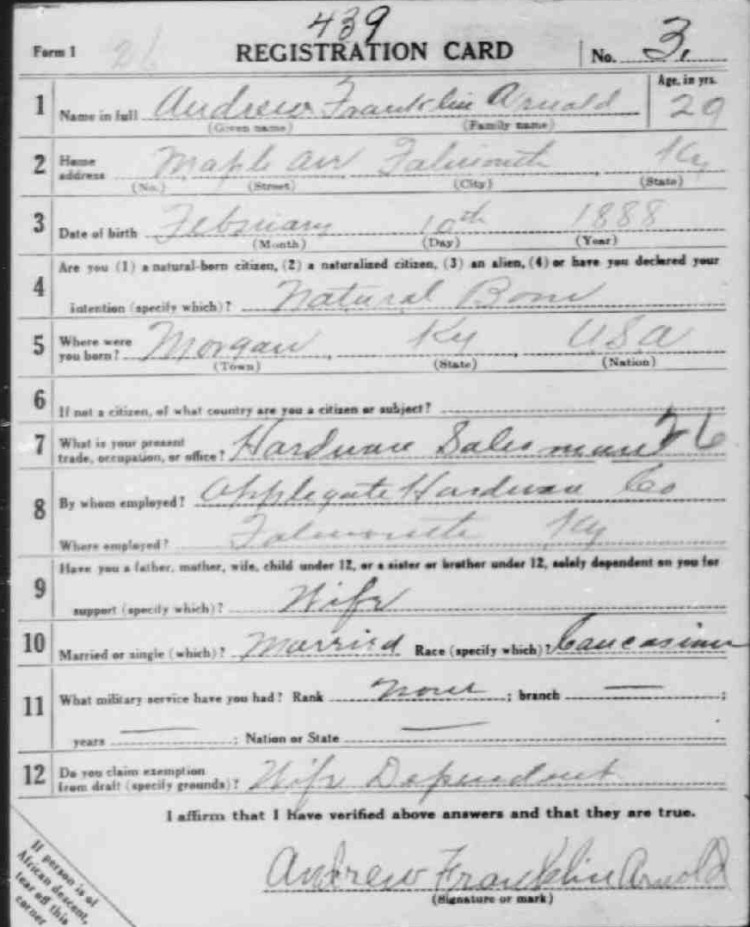 439
Form 1 26 REGISTRATION CARD No. 3.
1 Name in full Andrew Franklin Arnold Age, in yrs. 29
(Given name) (Family name)
2 Home address Maple Ave Falmouth Ky
(No.) (Street) (City) (State)
3 Date of birth February 10th 1888
(Month) (Day) (Year)
4 Are you (1) a natural-born citizen, (2) a naturalized citizen, (3) an alien, (4) or have you declared your
intention (specify which)? Natural Born
5 Where were you born? Morgan Ky USA
(Town) (State) (Nation)
6 If not a citizen, of what country are you a citizen or subject?
7 What is your present trade, occupation, or office? Hardware Salesman 26
8 By whom employed? Applegate Hardware Co
Where employed? Falmouth Ky
9 Have you a father, mother, wife, child under 12, or a sister or brother under 12, solely dependent on you for
support (specify which)? Wife
10 Married or single (which)? Married Race (specify which)? Caucasian
11 What military service have you had? Rank None ; branch — ;
years — ; Nation or State —
12 Do you claim exemption from draft (specify grounds)? Wife Dependent
I affirm that I have verified above answers and that they are true.
Andrew Franklin Arnold
(Signature or mark)
If person is of
African descent,
tear off this
corner